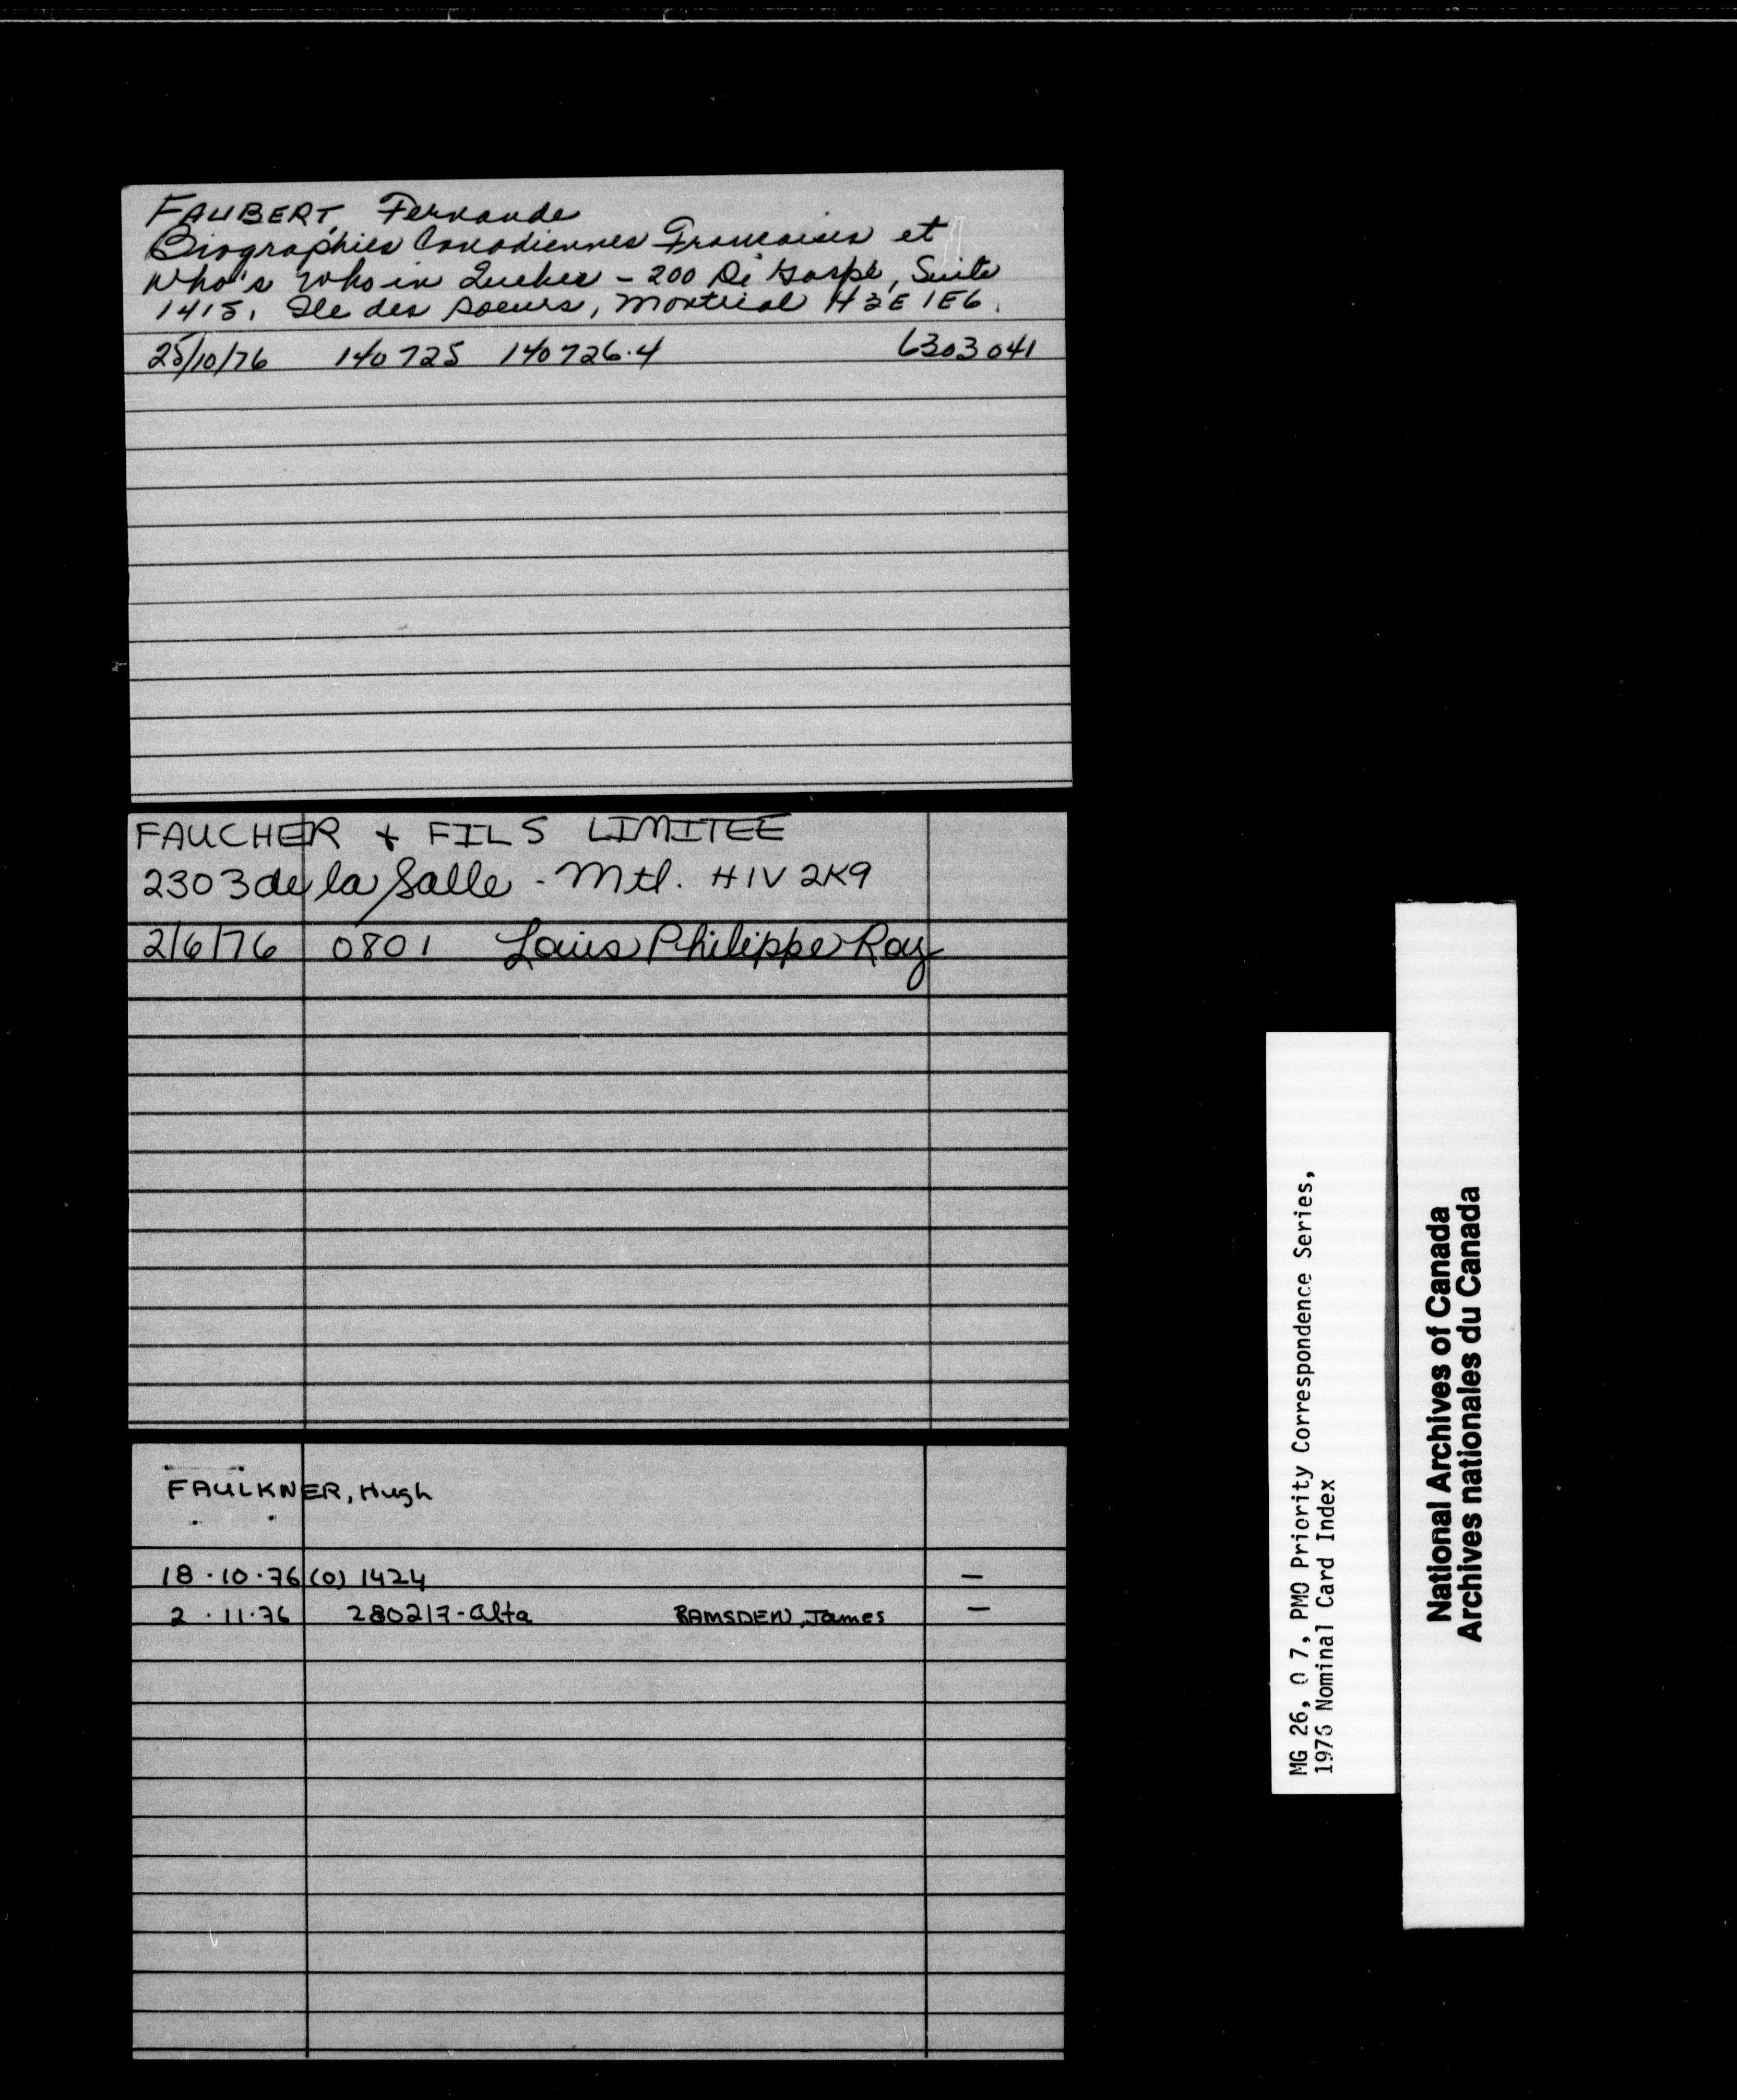 FAUBERT, Fernande
Biographies Canadiennes Francaises et
Who's Who in Quebec - 200 De Gaspé, Suite
1415, Ile des Soeurs, Montreal H3E 1E6.
25/10/76 140725 140726.4 6303041
FAUCHER + FILS LIMITEE
2303 de la Salle - Mtl. H1V 2K9
2/6/76 0801 Louis Philippe Roy
FAULKNER, Hugh
18.10.76 (0) 1424 —
2.11.76 280217-Alta RAMSDEN, James —
MG 26, O 7, PMO Priority Correspondence Series,
1976 Nominal Card Index
National Archives of Canada
Archives nationales du Canada